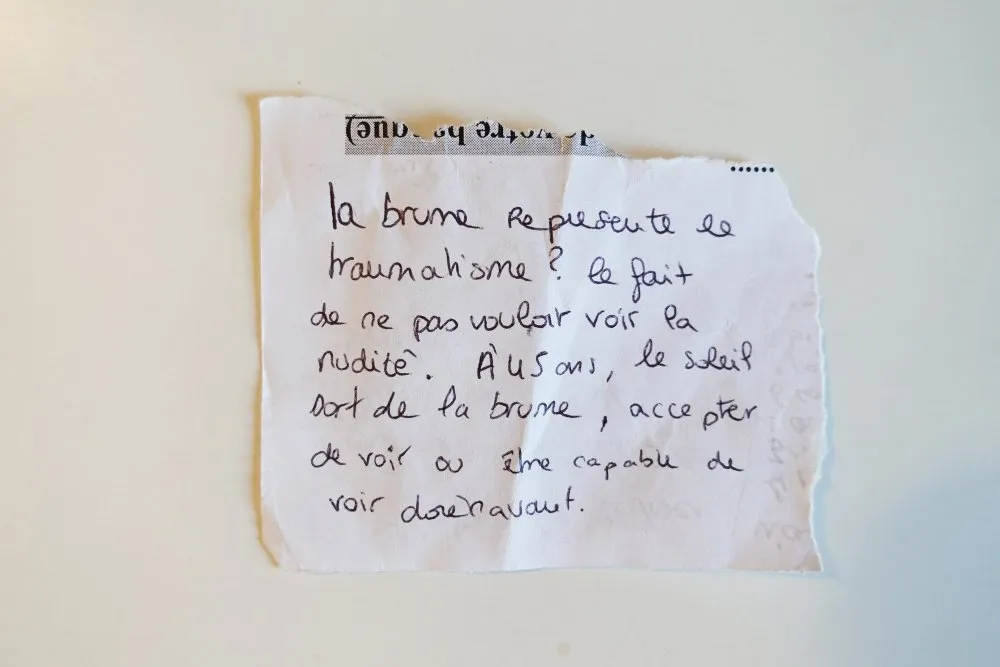 de votre ba que)
la brume represente le
traumatisme ? le fait
de ne pas vouloir voir la
nudité. À 45 ans, le soleil
sort de la brume, accepter
de voir ou être capable de
voir dorénavant.